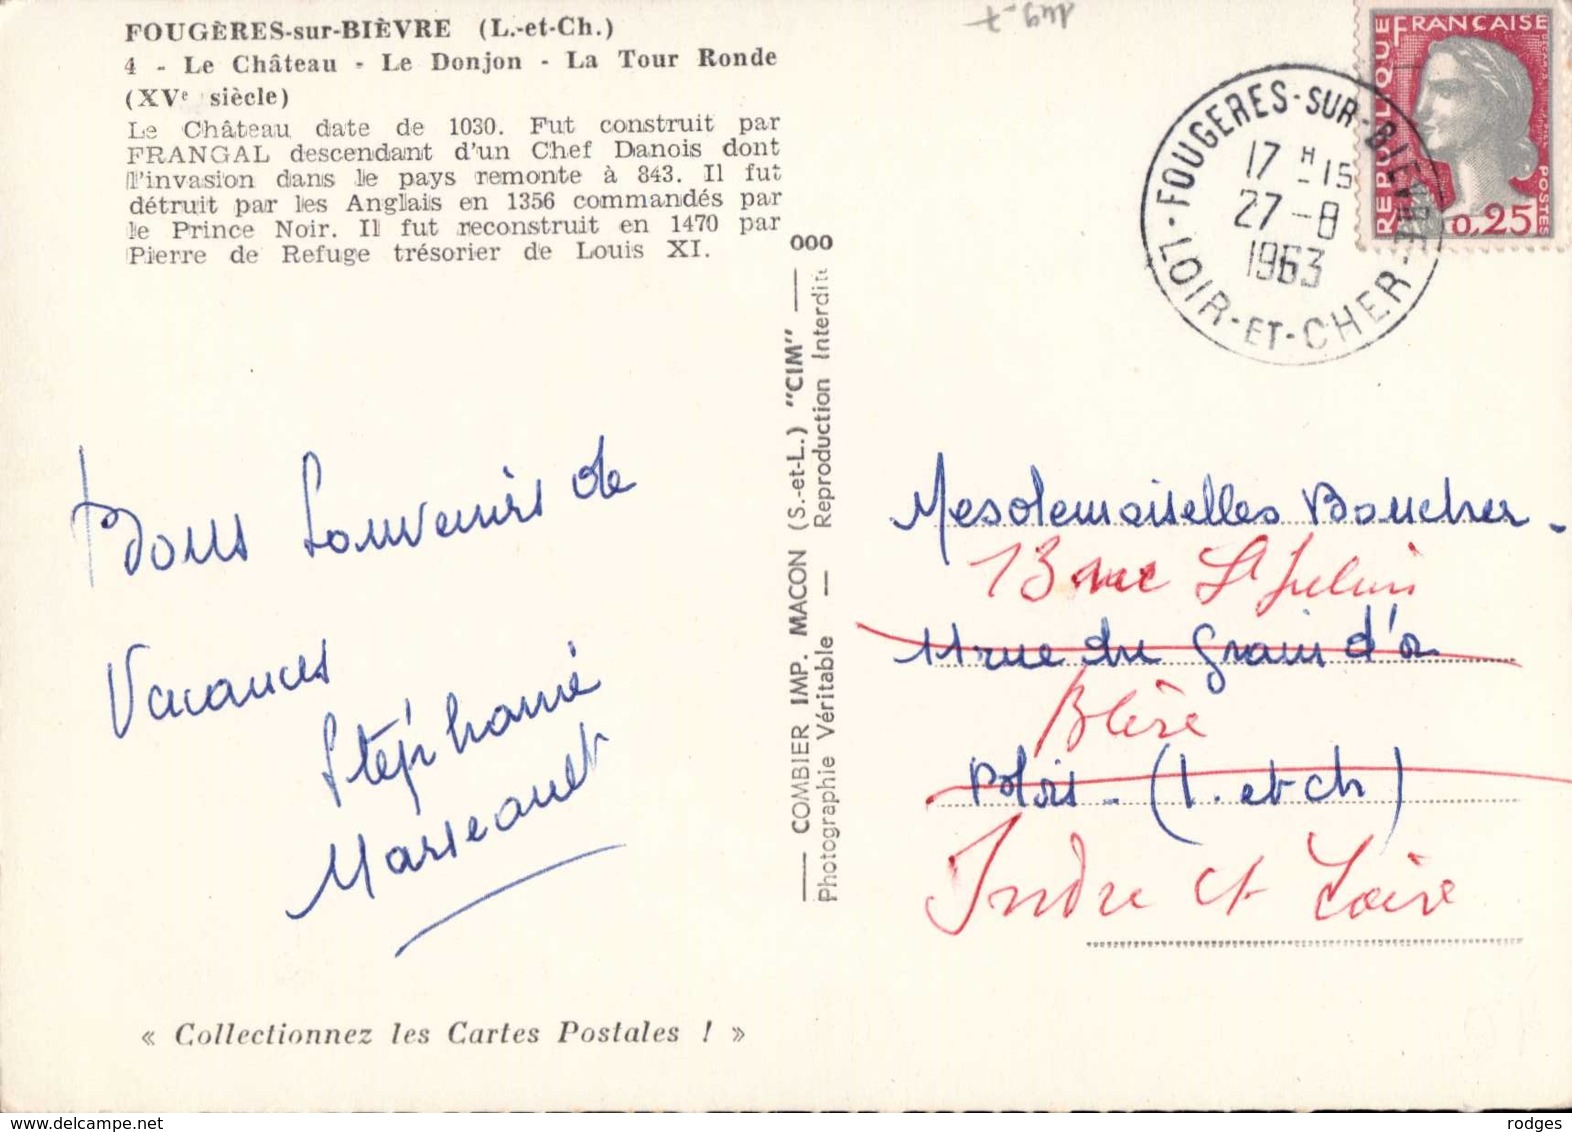 FOUGÈRES-sur-BIÈVRE (L.-et-Ch.)
4 - Le Château - Le Donjon - La Tour Ronde
(XVe siècle)
Le Château date de 1030. Fut construit par
FRANGAL descendant d'un Chef Danois dont
l'invasion dans le pays remonte à 843. Il fut
détruit par les Anglais en 1356 commandés par
le Prince Noir. Il fut reconstruit en 1470 par
Pierre de Refuge trésorier de Louis XI.
Bons Souvenirs de
Vacances
Stéphanie
Marseault
« Collectionnez les Cartes Postales ! »
000
COMBIER IMP. MACON (S.-et-L.) "CIM"
Photographie Véritable — Reproduction Interdite
FOUGERES-SUR-BIEVRE
17 H -15
27 -8
1963
LOIR-ET-CHER
REPUBLIQUE
FRANÇAISE
POSTES
0,25
Mesdemoiselles Boucher.
13 rue St Julien
11 rue du Grain d'or
Bléré
Blois - (L. et Ch)
Indre et Loire
delcampe.net
rodges